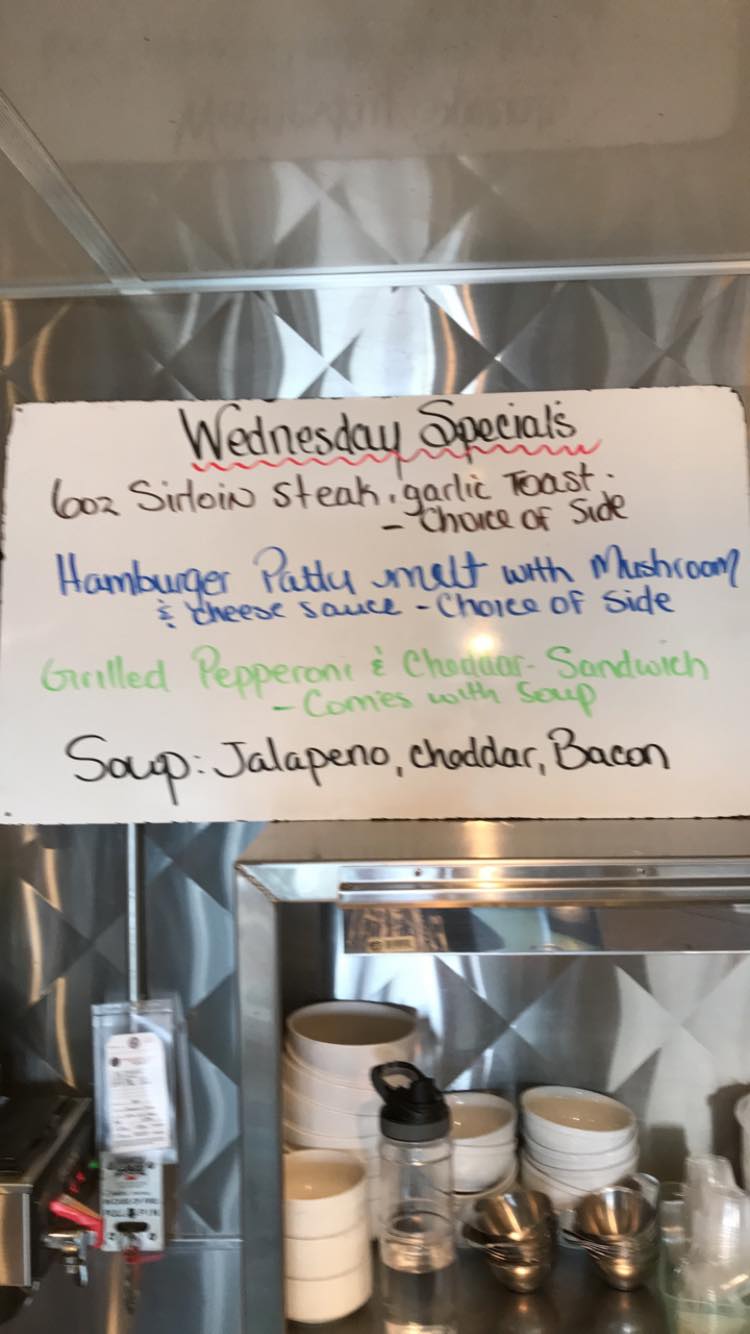 Wednesday Specials
6oz Sirloin Steak, garlic Toast.
- Choice of Side
Hamburger Patty melt with Mushroom
& cheese sauce - Choice of Side
Grilled Pepperoni & Cheddar Sandwich
- Comes with Soup
Soup: Jalapeno, cheddar, Bacon
PULL PIN